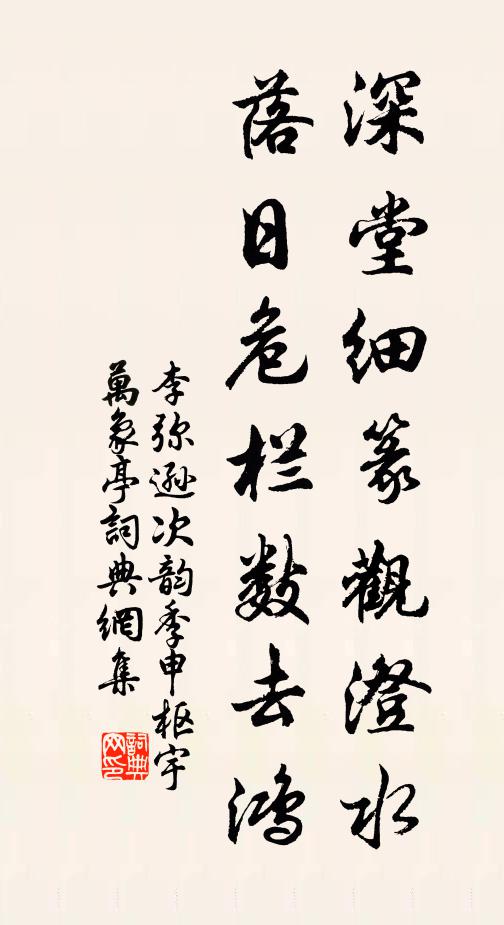 深堂细篆觀澄水
落日危栏数去鸿
李弥遜次韵季申枢宇
萬象亭詞典網集
詞典网印